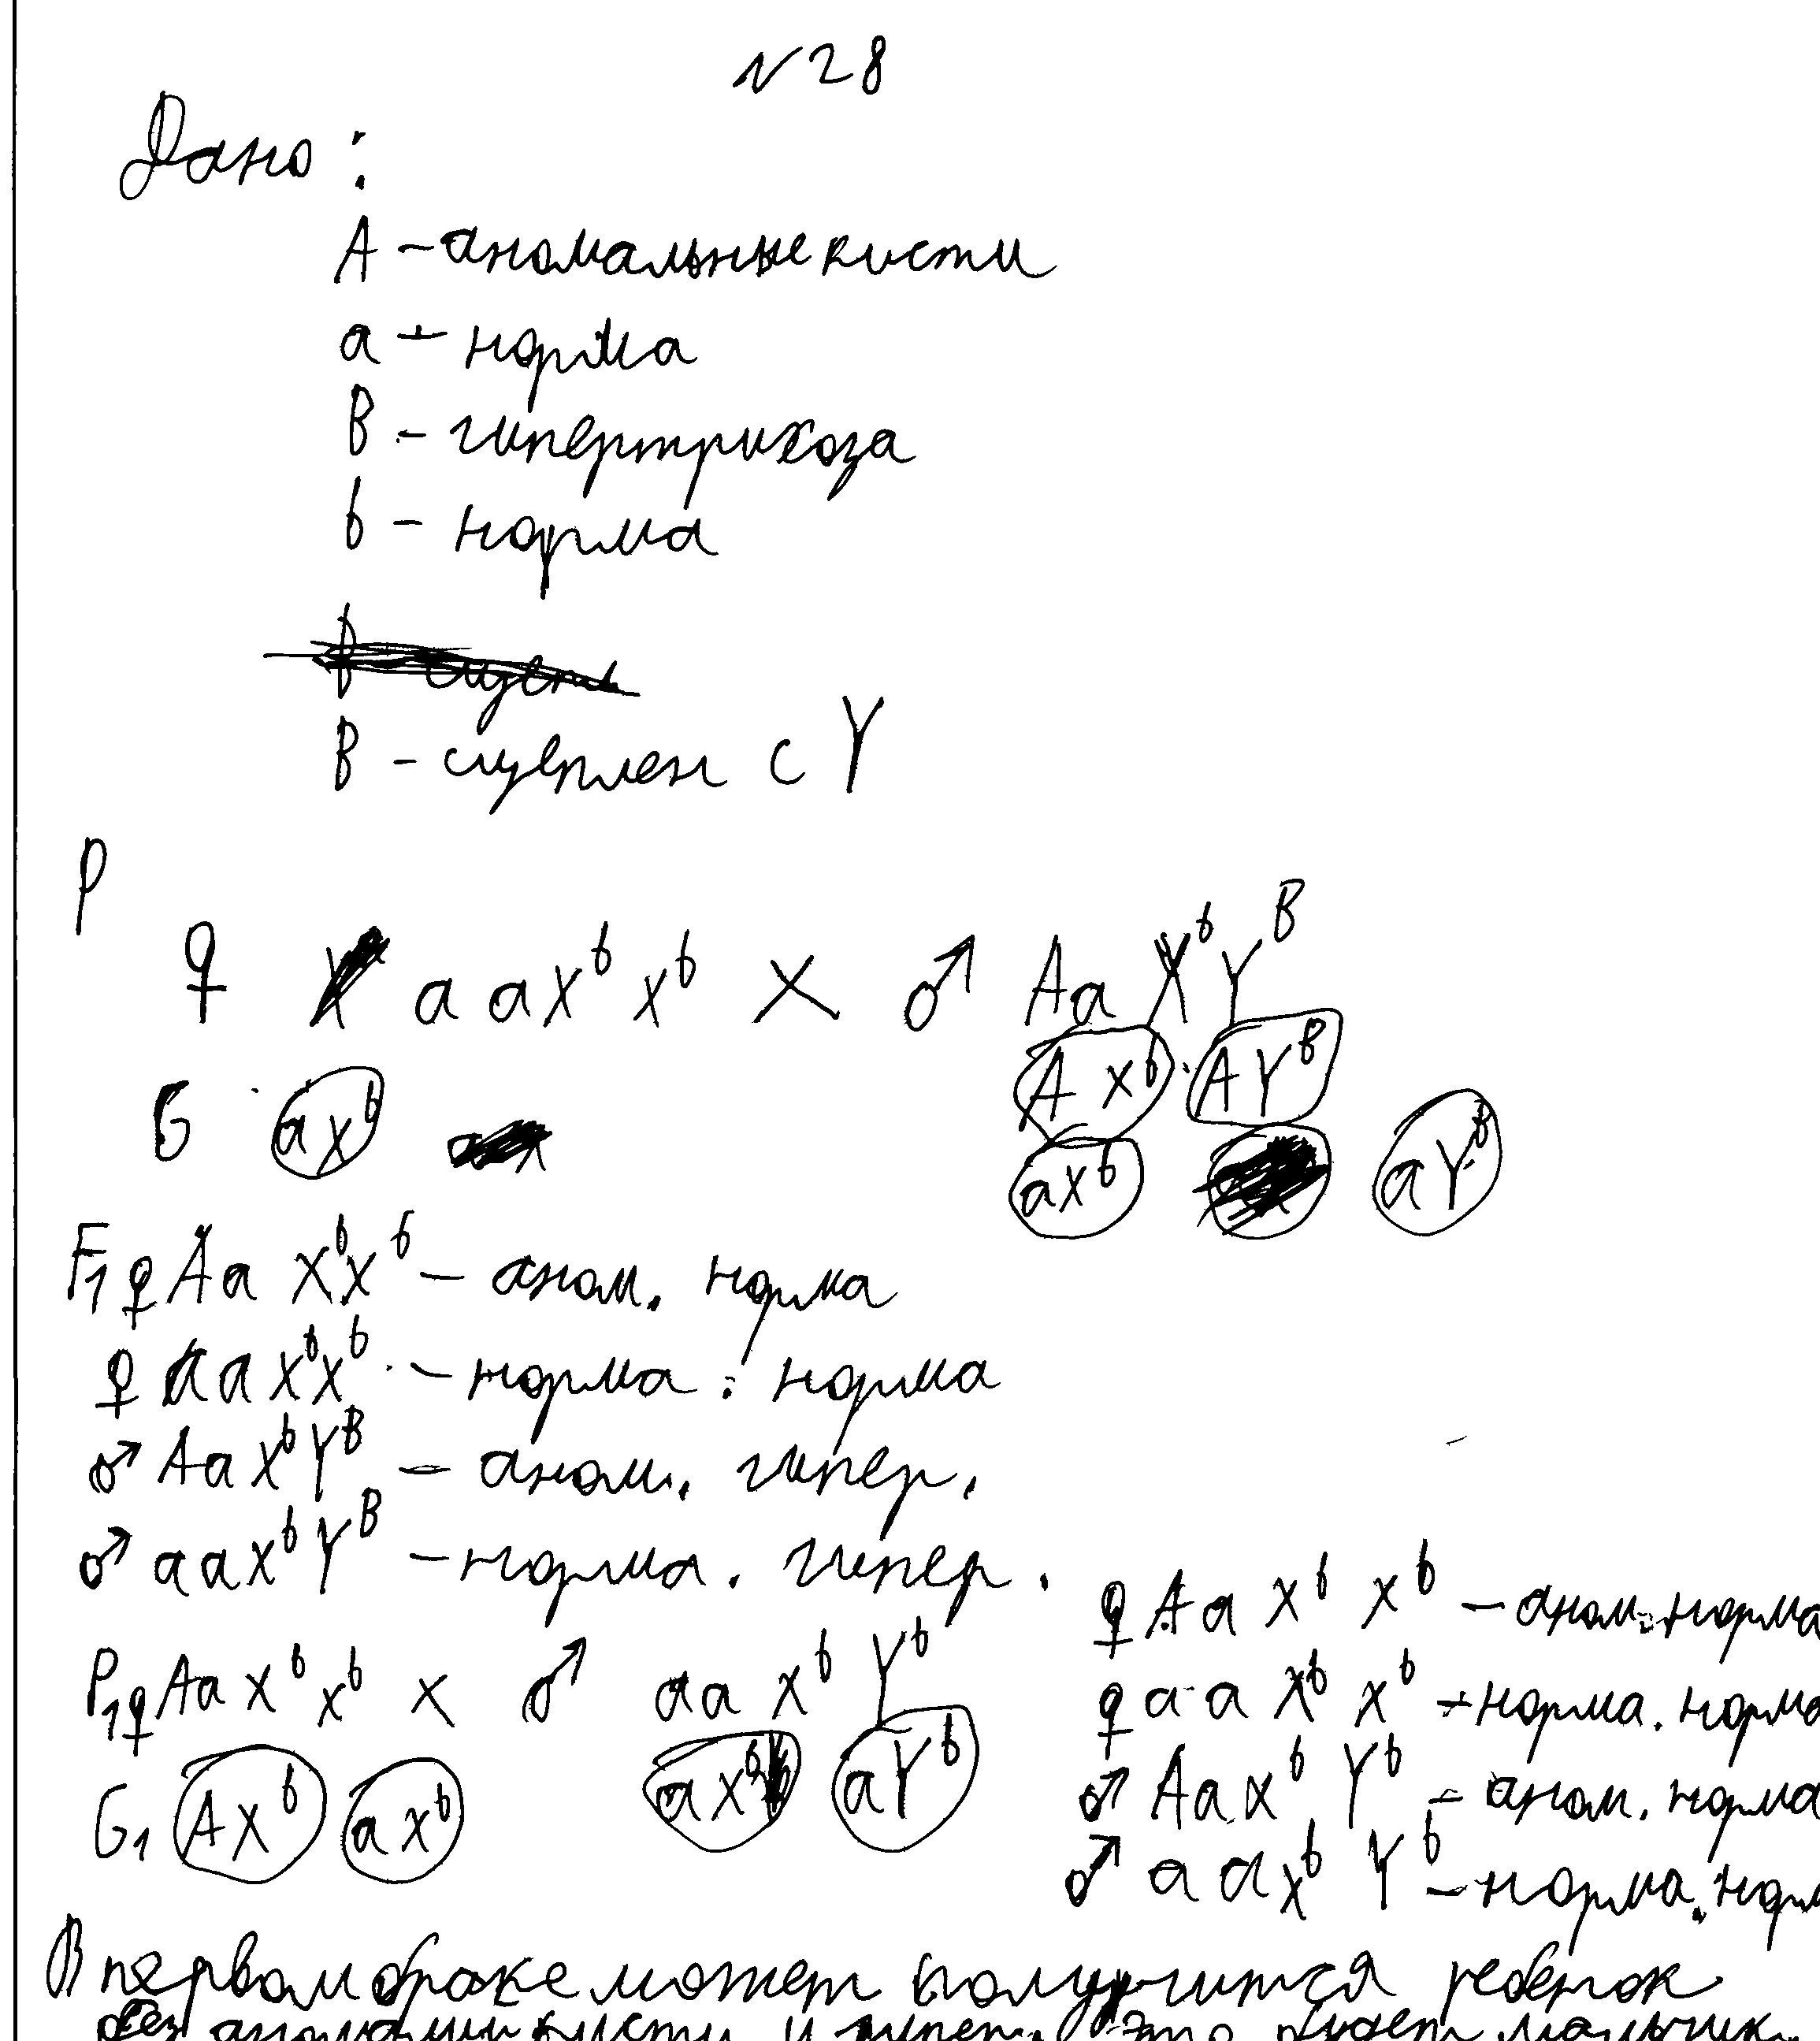 №28
Дано:
A – аномальные кисти
a – норма
B – гипертрихоза
b – норма
B – сцеплен с Y
P
♀ a aX^b X^b × ♂ Aa X^b Y^B
G aX^b A X^b AY^B
aX^b aY^B
F1 ♀ Aa X^b X^b – аном. норма
♀ aa X^b X^b – норма. норма
♂ Aa X^b Y^B – аном. гипер.
♂ aa X^b Y^B – норма. гипер.
P1 ♀ Aa X^b X^b × ♂ aa X^b Y^b
G1 AX^b aX^b aX^b aY^b
♀ Aa X^b X^b – аном. норма
♀ aa X^b X^b – норма. норма
♂ Aa X^b Y^b – аном. норма
♂ aa X^b Y^b – норма. норм
В первом браке может получится ребёнок
без аномалии кисти и гипер. это будет мальчик.